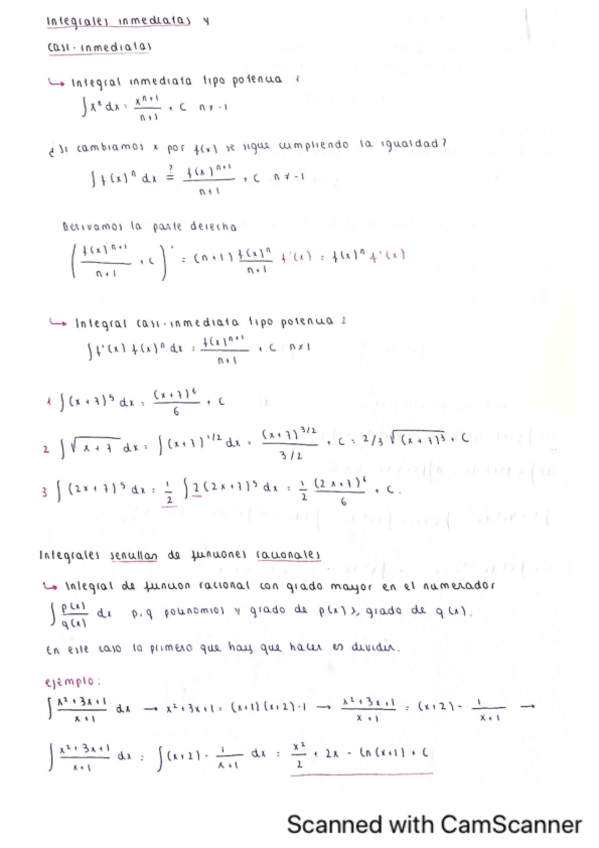 Integrales inmediatas y
casi-inmediatas
↳ Integral inmediata tipo potencia 1
∫xⁿ dx = xⁿ⁺¹/(n+1) + C n≠-1
¿Si cambiamos x por f(x) se sigue cumpliendo la igualdad?
∫f(x)ⁿ dx ≟ f(x)ⁿ⁺¹/(n+1) + C n≠-1
Derivamos la parte derecha
(f(x)ⁿ⁺¹/(n+1) + C)' = (n+1) f(x)ⁿ/(n+1) f'(x) = f(x)ⁿ f'(x)
↳ Integral casi-inmediata tipo potencia 2
∫f'(x) f(x)ⁿ dx = f(x)ⁿ⁺¹/(n+1) + C n≠1
1 ∫(x+7)⁵ dx = (x+7)⁶/6 + C
2 ∫√(x+7) dx = ∫(x+7)^1/2 dx = (x+7)^3/2/(3/2) + C = 2/3 √(x+7)³ + C
3 ∫(2x+7)⁵ dx = 1/2 ∫2(2x+7)⁵ dx = 1/2 (2x+7)⁶/6 + C.
Integrales sencillas de funciones racionales
↳ Integral de función racional con grado mayor en el numerador
∫p(x)/q(x) dx p,q polinomios y grado de p(x) ≥ grado de q(x).
En este caso lo primero que hay que hacer es dividir.
ejemplo:
∫(x²+3x+1)/(x+1) dx → x²+3x+1 = (x+1)(x+2)-1 → (x²+3x+1)/(x+1) = (x+2) - 1/(x+1) →
∫(x²+3x+1)/(x+1) dx = ∫(x+2) - 1/(x+1) dx = x²/2 + 2x - ln(x+1) + C
Scanned with CamScanner